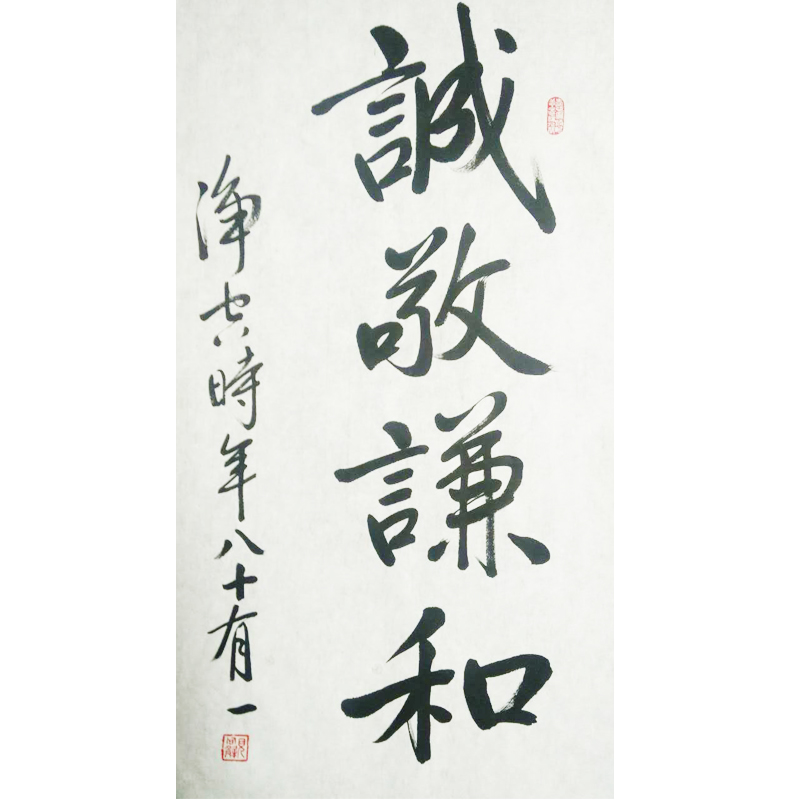 誠敬謙和
淨空時年八十有一